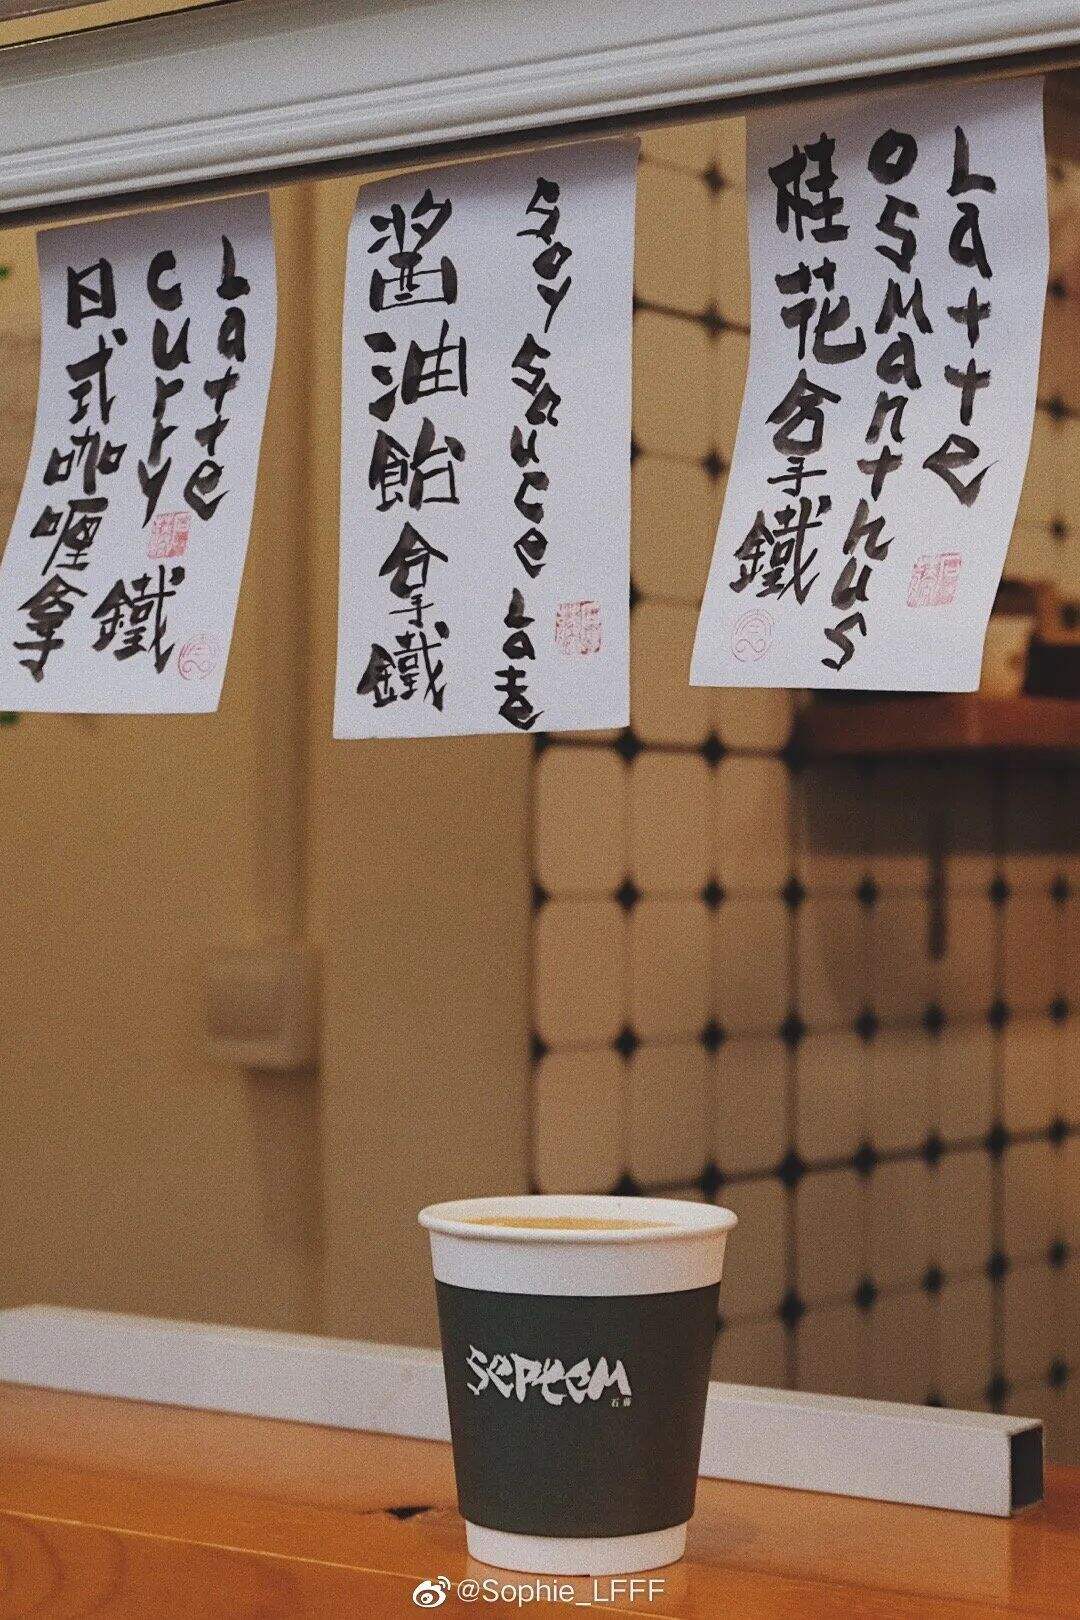 日式咖喱拿
鐵
Curry
Latte
醬油飴拿鐵
Soy Sauce Latte
桂花拿鐵
Osmanthus
Latte
@Sophie_LFFF